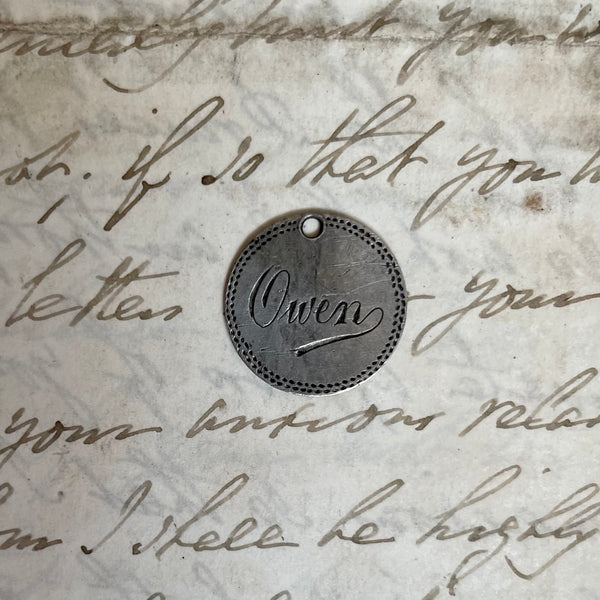 but you
oh, if so that you
letters
Owen
your
your anxious
I shall be highly